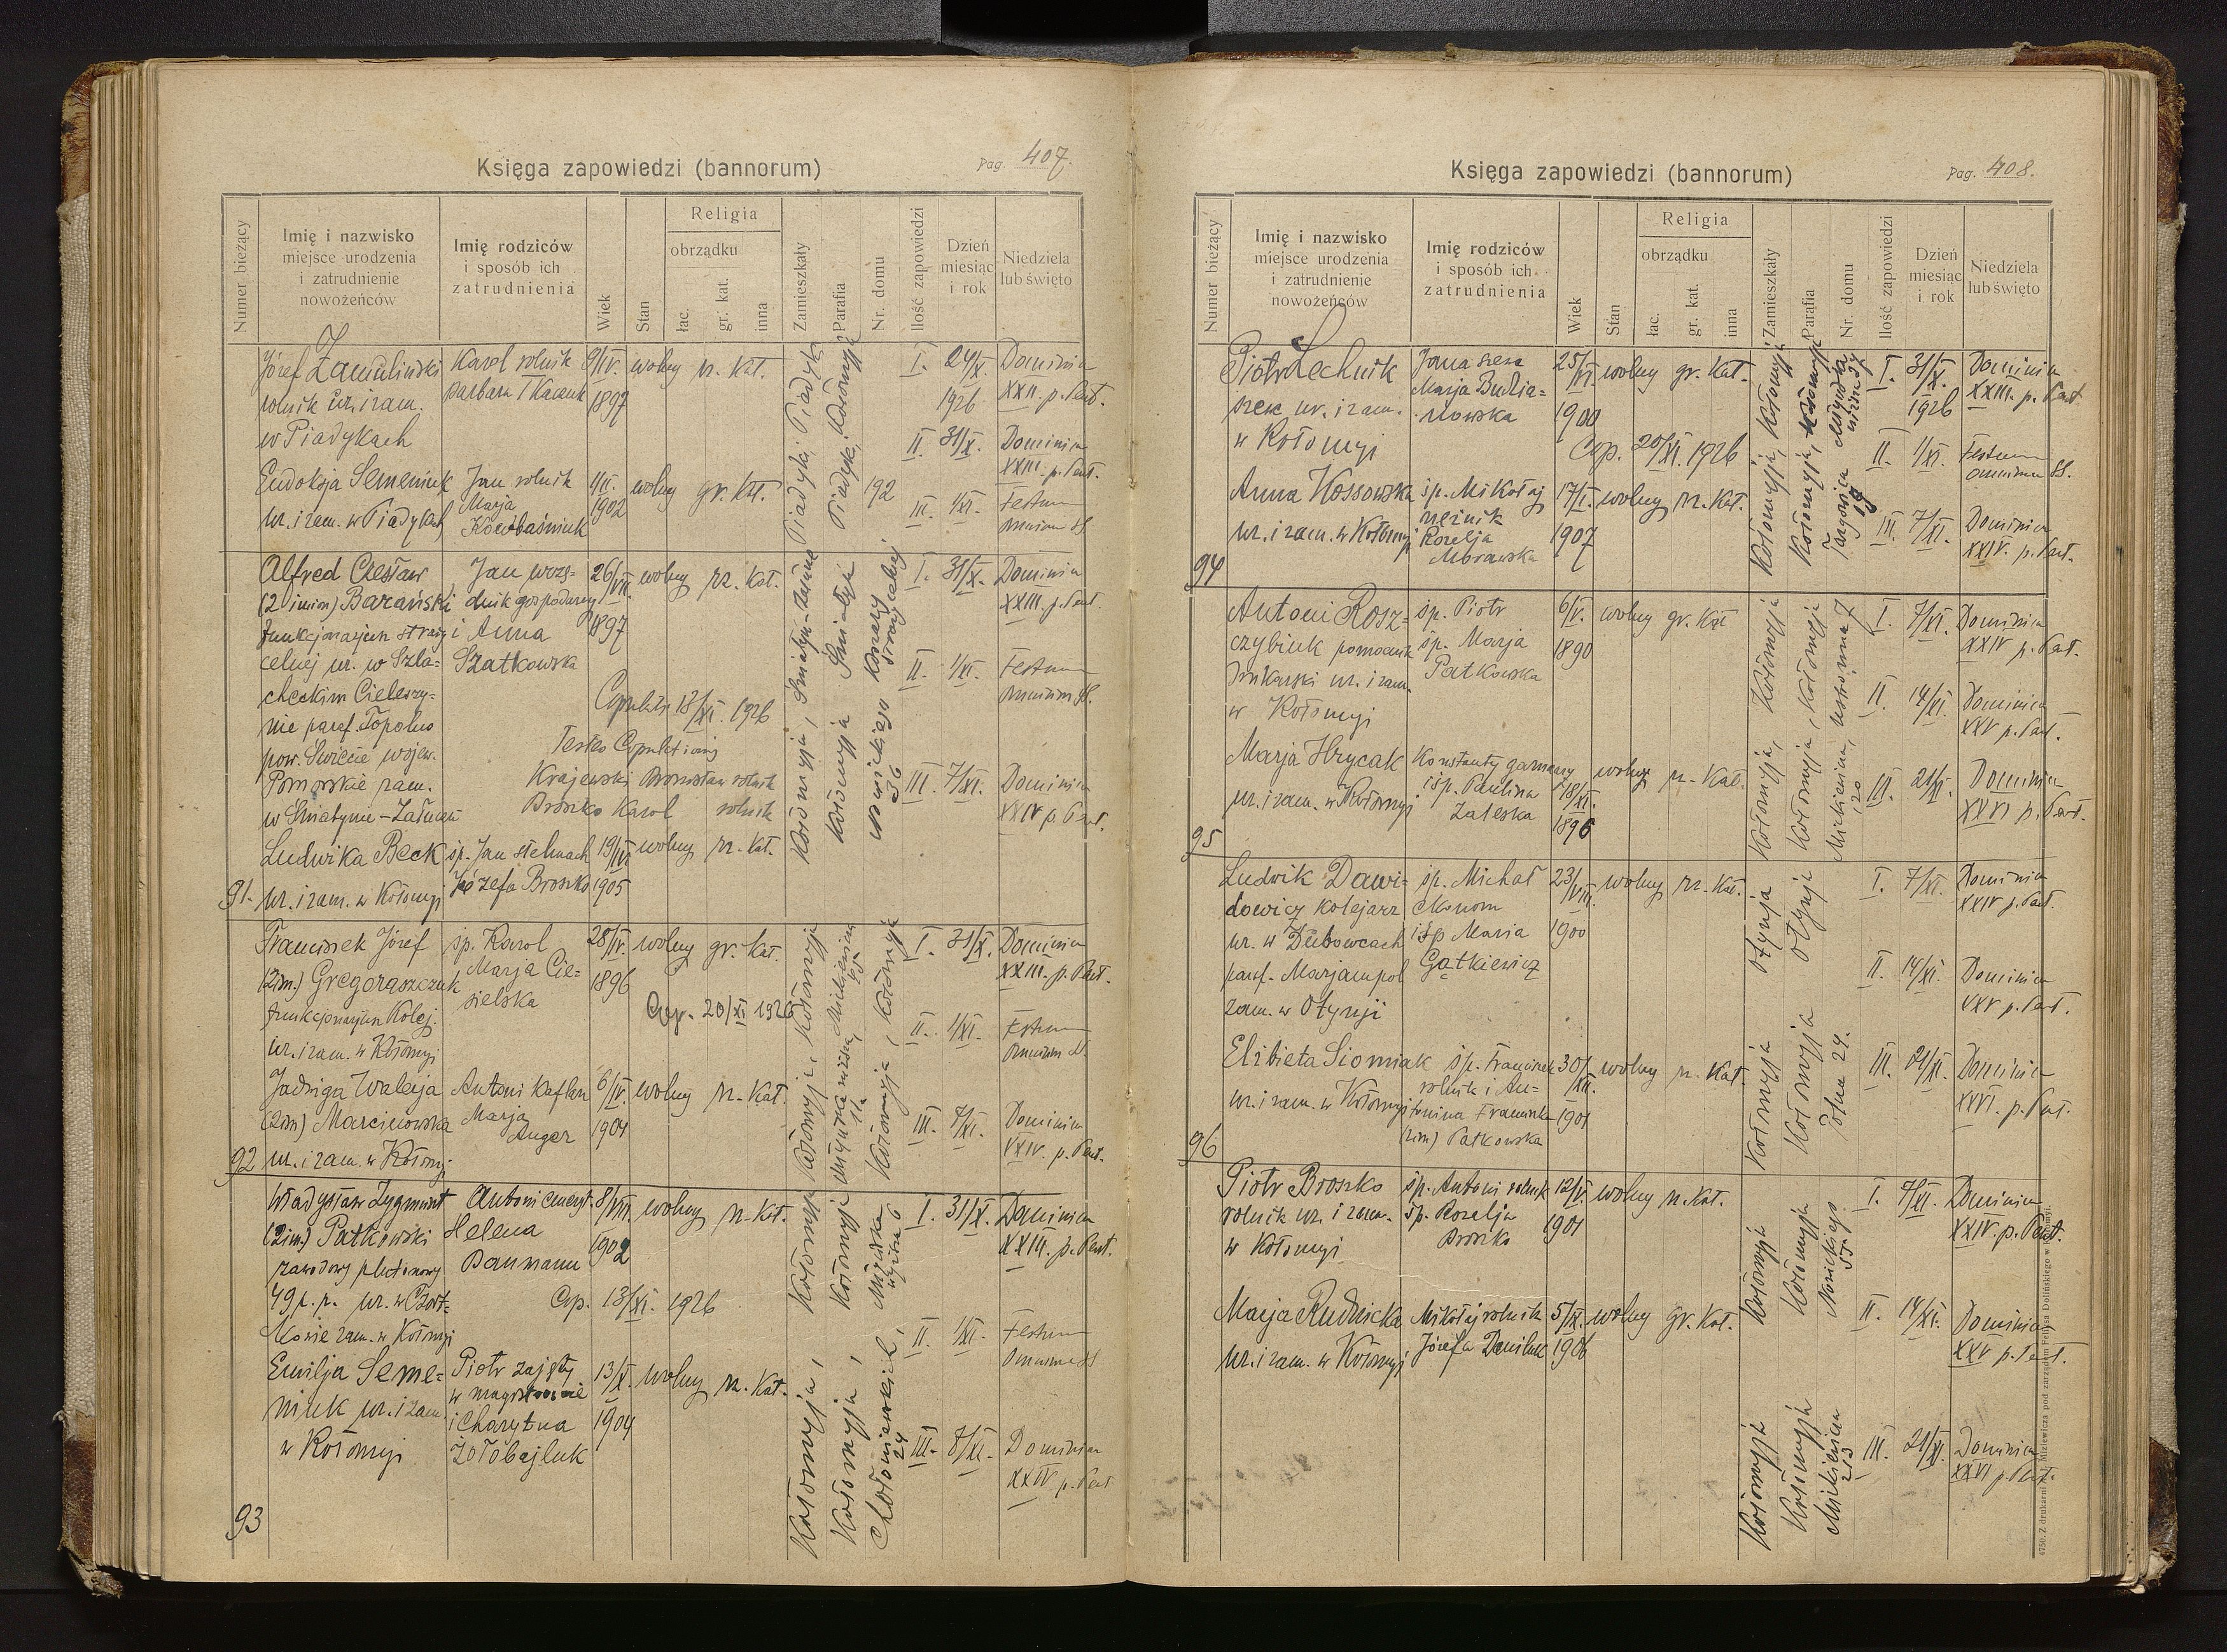 Księga zapowiedzi (bannorum)
Pag. 407.
Numer bieżący
Imię i nazwisko
miejsce urodzenia
i zatrudnienie
nowożeńców
Imię rodziców
i sposób ich
zatrudnienia
Wiek
Stan
Religia
obrządku
łac.
gr. kat.
inna
Zamieszkały
Parafia
Nr. domu
Ilość zapowiedzi
Dzień
miesiąc
i rok
Niedziela
lub święto
Józef Karol rolnik 9/IV. wolny rz. Kat. I. 24/X. Dominica
rolnik ur. i zam. Barbara Tkaczuk 1897 1926 XXII. p. Pent.
w Piadykach II 31/X. Dominica
XXIII. p. Pent.
Eudokja Semeniuk Jan rolnik wolny gr. Kat. 192
ur. i zam. w Piadykach Marja 1902 III. 1/XI. Festum
Omnium SS.
Piadyki, Piadyki
Piadyki, Kołomyja
Alfred Czesław Jan 26/VII. wolny rz. Kat. I. 31/X. Dominica
(2 imion) Barański XXIII. p. Pent.
funkcjonarjusz straży i Anna 1897
celnej ur. w Szla- Szatkowska II. 1/XI. Festum
checkim Omnium SS.
nie paraf. Topolno Copulatio 13/XI. 1926
pow. Świecie wojew. Testes Copulationis
Pomorskie zam. Krajewski Bronisław rolnik III. 7/XI. Dominica
w Śniatynie-Załuczu Broszko Karol rolnik XXIV p. Pent.
Ludwika Beck śp. Jan stelmach wolny rz. Kat.
91. ur. i zam. w Kołomyji Józefa Broszko 1905
Kołomyja, Śniatyn-Załucze
Kołomyja Śniatyn
36
Franciszek Józef śp. Karol 28/IV. wolny gr. Kat. I. 31/X. Dominica
(2im.) Gregoraszczuk Marja Cie- 1896 XXIII. p. Pent.
funkcjonarjusz Kolej. sielska Cop. 20/XI 1926 II. 1/XI. Festum
ur. i zam. w Kołomyji Omnium SS.
Jadwiga Walerja Antoni Kaflarz 6/IV. wolny rz. Kat. III. 7/XI. Dominica
(2im) Marcinowska Marja 1904 XXIV. p. Pent.
92 ur. i zam. w Kołomyji Anger
Kołomyja, Kołomyja
Kołomyja, Kołomyja
Władysław Zygmunt Antoni 8/VIII. wolny rz. Kat. I. 31/X. Dominica
(2im.) Patkowski Helena 1902 XXIII. p. Pent.
zawodowy plutonowy Baumann
49 p.p. ur. w Czort- Cop. 13/XI. 1926
kowie zam. w Kołomyji II. 1/XI. Festum
Omnium SS
Emilja Seme- Piotr zajęty 13/X. wolny rz. Kat.
niuk ur. i zam. w magistracie 1904
w Kołomyji i Charytyna III. 8/XI. Dominica
XXIV p. Pent
93
Kołomyja, Kołomyja
Kołomyja, Kołomyja
24
Księga zapowiedzi (bannorum)
Pag. 408.
Numer bieżący
Imię i nazwisko
miejsce urodzenia
i zatrudnienie
nowożeńców
Imię rodziców
i sposób ich
zatrudnienia
Wiek
Stan
Religia
obrządku
łac.
gr. kat.
inna
Zamieszkały
Parafia
Nr. domu
Ilość zapowiedzi
Dzień
miesiąc
i rok
Niedziela
lub święto
Piotr Lechnik wolny gr. Kat. I. 31/X. Dominica
ur. i zam. 1900 1926 XXIII. p. Pent
w Kołomyji Cop. 20/XI. 1926 II. 1/XI. Festum
Omnium SS.
Anna Kossowska śp. Mikołaj 17/I. wolny rz. Kat.
ur. i zam. w Kołomyji rzeźnik 1907 III. 7/XI. Dominica
94 Rozalja XXIV. p. Pent.
Morawska
Kołomyja, Kołomyja
Kołomyja, Kołomyja
Antoni Rosz- śp. Piotr 6/V. wolny gr. Kat I. 7/XI. Dominica
czybiuk pomocnik śp. Marja 1890 XXIV p. Pent.
drukarski ur. i zam. Patkowska II. 14/XI. Dominica
w Kołomyji XXV p. Pent.
Marja Hrycak Konstanty garncarz wolny rz. Kat. III. 21/XI. Dominica
ur. i zam. w Kołomyji i śp. Paulina 18/XI. XXVI p. Pent.
95 Zaleska 1896
Kołomyja, Kołomyja
Kołomyja, Kołomyja
Ludwik Dawi- śp. Michał 23/VIII. wolny rz. Kat. I. 7/XI. Dominica
dowicz kolejarz ekonom XXIV p. Pent.
ur. w Dubowcach i śp Maria 1900
paraf. Marjampol Gątkiewicz II. 14/XI. Dominica
zam. w Otynji XXV p. Pent.
Elżbieta Siomiak śp. Franciszek 30/XII. wolny rz. Kat. III. 21/XI. Dominica
ur. i zam. w Kołomyji rolnik i An- XXVI. p. Pent.
tonina Franciszka 1901
96 (2im) Patkowska
Kołomyja Otynja
Kołomyja Otynja
Polna 24.
Piotr Broszko śp. Antoni rolnik 12/V. wolny rz. Kat. I. 7/XI. Dominica
rolnik ur. i zam. śp. Rozalja 1901 XXIV. p. Pent.
w Kołomyji Broszko
Marja Rudnicka Mikołaj rolnik 5/IX. wolny gr. Kat. II. 14/XI. Dominica
ur. i zam. w Kołomyji Józefa Daniluk 1906 XXV p. Pent.
III. 21/XI. Dominica
XXVI p. Pent.
Kołomyja Kołomyja
Kołomyja Kołomyja